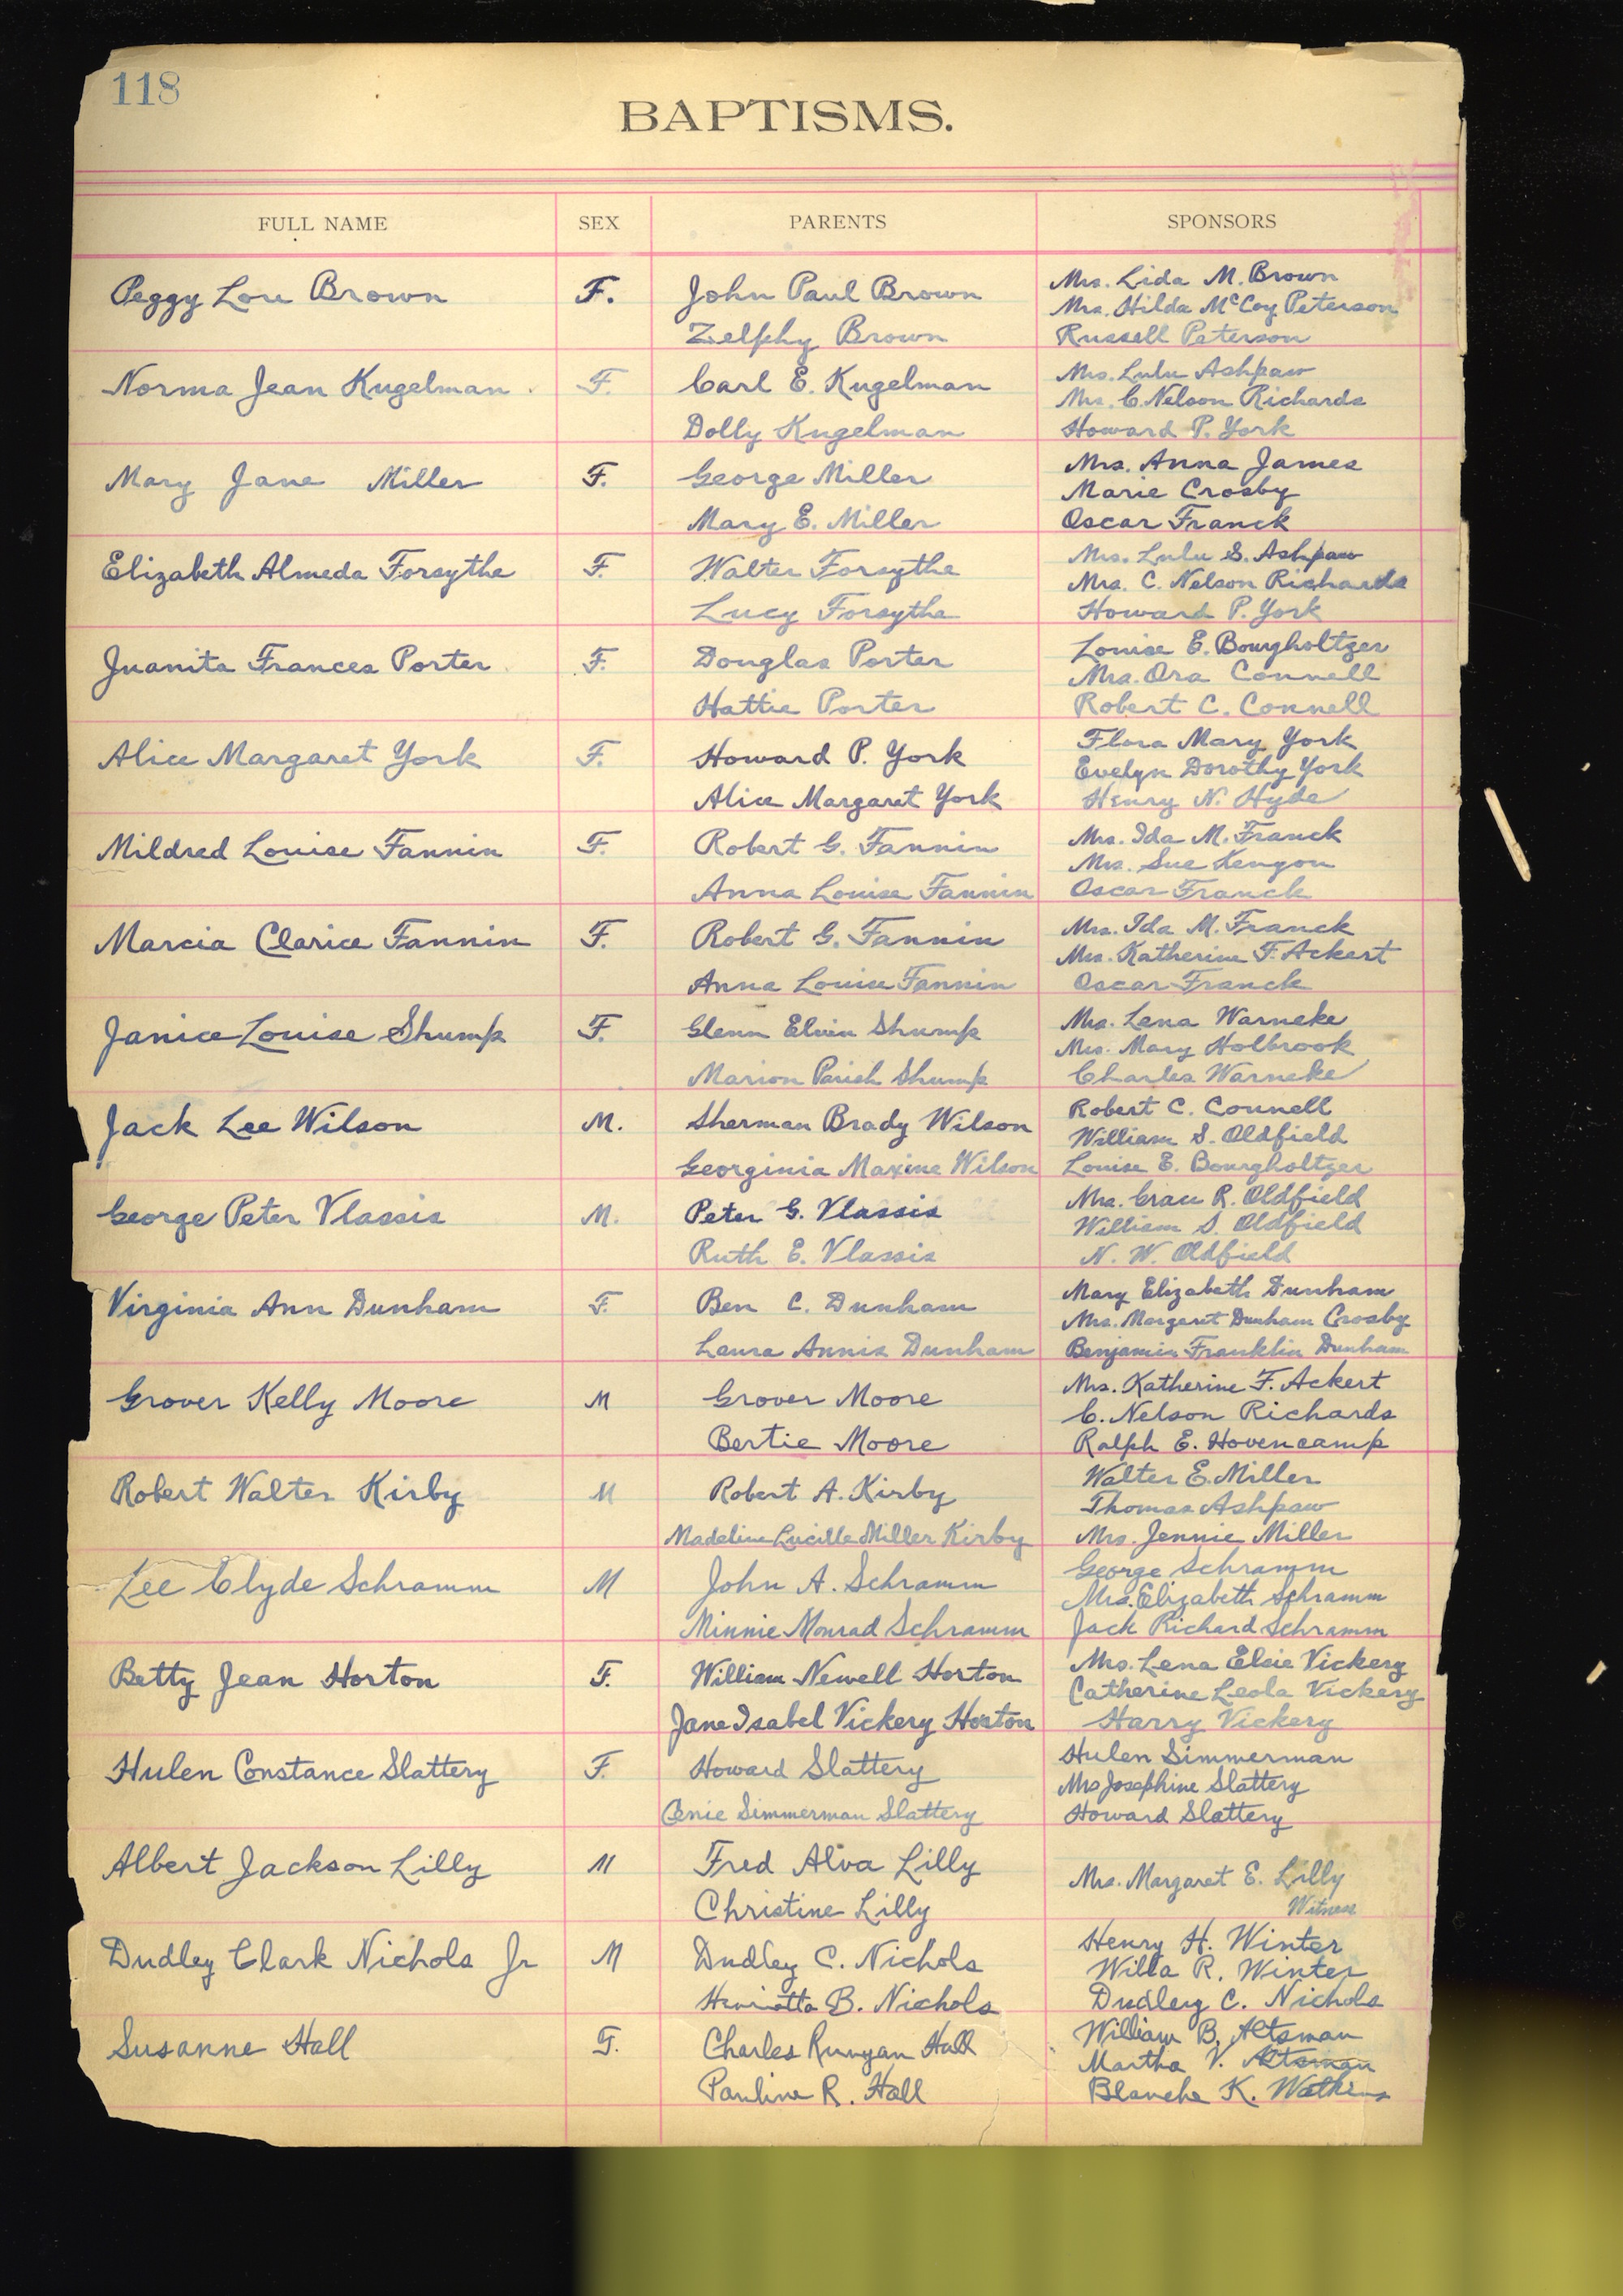 118
BAPTISMS.
FULL NAME SEX PARENTS SPONSORS
Peggy Lou Brown F. John Paul Brown Mrs. Lida M. Brown
Mrs. Hilda McCoy Peterson
Zelphy Brown Russell Peterson
Norma Jean Kugelman. F. Carl E. Kugelman Mrs. Lulu Ashpaw
Mrs. C. Nelson Richards
Dolly Kugelman Howard P. York
Mary Jane Miller F. George Miller Mrs. Anna James
Marie Crosby
Mary E. Miller Oscar Franck
Elizabeth Almeda Forsythe F. Walter Forsythe Mrs. Lulu S. Ashpaw
Mrs. C. Nelson Richards
Lucy Forsythe Howard P. York
Juanita Frances Porter F. Douglas Porter Louise E. Bourgholtzer
Mrs. Ora Connell
Hattie Porter Robert C. Connell
Alice Margaret York F. Howard P. York Flora Mary York
Evelyn Dorothy York
Alice Margaret York Henry N. Hyde
Mildred Louise Fannin F. Robert G. Fannin Mrs. Ida M. Franck
Mrs. Sue Kenyon
Anna Louise Fannin Oscar Franck
Marcia Clarice Fannin F. Robert G. Fannin Mrs. Ida M. Franck
Mrs. Katherine F. Ackert
Anna Louise Fannin Oscar Franck
Janice Louise Shump F. Glenn Elvin Shump Mrs. Lena Warneke
Mrs. Mary Holbrook
Marion Parish Shump Charles Warneke
Jack Lee Wilson M. Sherman Brady Wilson Robert C. Connell
William S. Oldfield
Georginia Maxine Wilson Louise E. Bourgholtzer
George Peter Vlassis M. Peter G. Vlassis Mrs. Grace R. Oldfield
William S. Oldfield
Ruth E. Vlassis N. W. Oldfield
Virginia Ann Dunham F. Ben C. Dunham Mary Elizabeth Dunham
Mrs. Margaret Dunham Crosby
Laura Annis Dunham Benjamin Franklin Dunham
Grover Kelly Moore M Grover Moore Mrs. Katherine F. Ackert
C. Nelson Richards
Bertie Moore Ralph E. Hovencamp
Robert Walter Kirby M Robert A. Kirby Walter E. Miller
Thomas Ashpaw
Madeline Lucille Miller Kirby Mrs. Jennie Miller
Lee Clyde Schramm M John A. Schramm George Schramm
Mrs. Elizabeth Schramm
Minnie Monrad Schramm Jack Richard Schramm
Betty Jean Horton F. William Newell Horton Mrs. Lena Elsie Vickery
Catherine Leola Vickery
Jane Isabel Vickery Horton Harry Vickery
Hulen Constance Slattery F. Howard Slattery Hulen Simmerman
Mrs Josephine Slattery
Simmerman Slattery Howard Slattery
Albert Jackson Lilly M Fred Alva Lilly Mrs. Margaret E. Lilly
Christine Lilly Witness
Dudley Clark Nichols Jr M Dudley C. Nichols Henry H. Winter
Willa R. Winter
Henrietta B. Nichols Dudley C. Nichols
Susanne Hall F. Charles Runyan Hall William B. Altsman
Martha V. Altsman
Pauline R. Hall Blanche K. Watkins